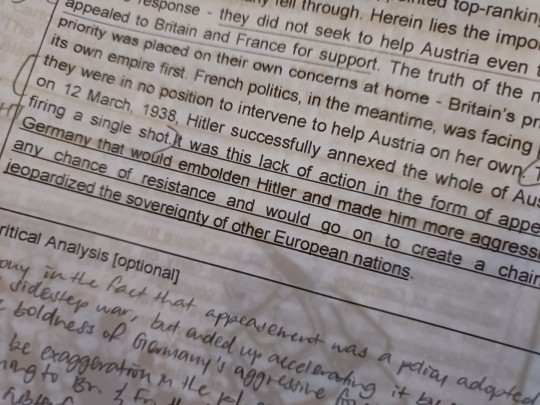 fell through. Herein lies the impo
response - they did not seek to help Austria even
appealed to Britain and France for support. The truth of the
priority was placed on their own concerns at home - Britain's pr
its own empire first. French politics, in the meantime, was facing
they were in no position to intervene to help Austria on her own.
on 12 March, 1938, Hitler successfully annexed the whole of Aus
firing a single shot. It was this lack of action in the form of appe
Germany that would embolden Hitler and made him more aggressi
any chance of resistance and would go on to create a chain
jeopardized the sovereignty of other European nations.
ritical Analysis [optional]
in the fact that appeasement was a policy adopted
sidestep war, but ended up accelerating it by
boldness of Germany's aggressive
be exaggeration in the
to Br. &